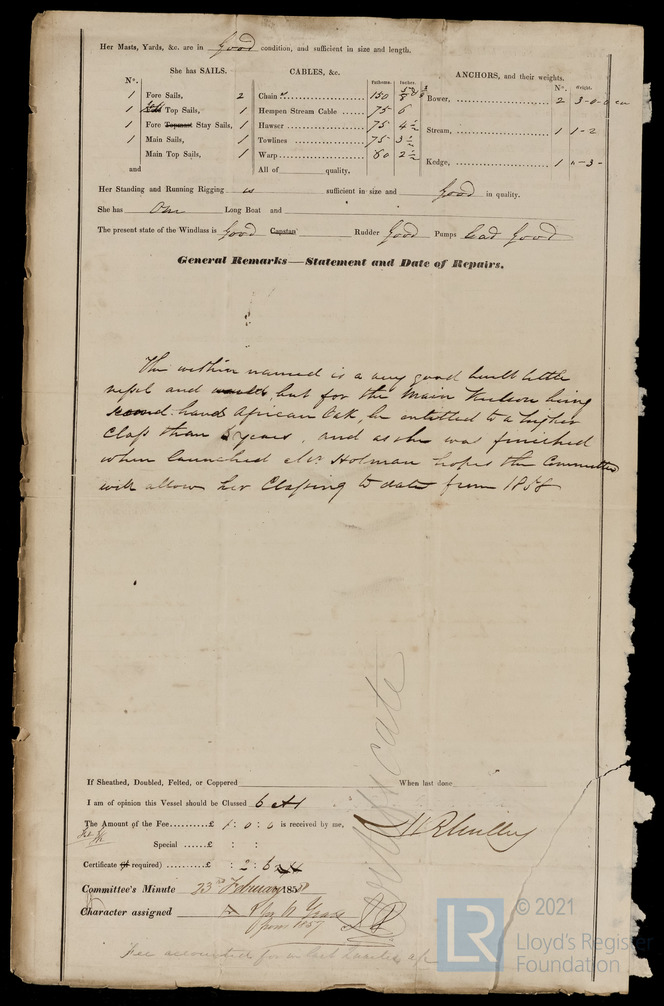 Her Masts, Yards, &c. are in Good condition, and sufficient in size and length.
She has SAILS. CABLES, &c. ANCHORS, and their weights.
N°. Fathoms. Inches. N°. Weight.
1 Fore Sails, 2 Chain 150 Bower, 2 3-0-0
1 Top Sails, 1 Hempen Stream Cable 75 6
1 Fore Topmast Stay Sails, 1 Hawser 75 4½ Stream, 1 1-2
1 Main Sails, 1 Towlines 75 3½
Main Top Sails, 1 Warp 60 2½ Kedge, 1 "-3-
and All of quality.
Her Standing and Running Rigging is sufficient in size and Good in quality.
She has One Long Boat and
The present state of the Windlass is Good Capstan Rudder Good Pumps Lead Good
General Remarks—Statement and Date of Repairs.
The within named is a very good built little
vessel and would, but for the Main Keelson being
second hand African Oak, be entitled to a higher
Class than years, and as she was finished
when launched Mr. Holman hopes the Committee
will allow her Classing to date from 1858
If Sheathed, Doubled, Felted, or Coppered When last done
I am of opinion this Vessel should be Classed 6 A1
The Amount of the Fee..........£ 1 : 0 : 0 is received by me,
Special ......£ : :
Certificate (if required) ......£ : 2 : 6
Committee's Minute 23rd February 1858
Character assigned A1 for 6 Years
from 1857
Certificate
Fee accounted for
LR
© 2021
Lloyd's Register
Foundation